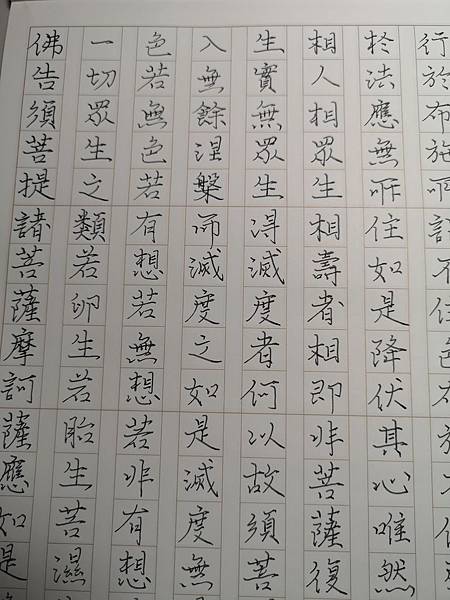 佛告須菩提諸菩薩摩訶薩應如是
一切眾生之類若卵生若胎生若濕
色若無色若有想若無想若非有想
入無餘涅槃而滅度之如是滅度無
生實無眾生得滅度者何以故須菩
相人相眾生相壽者相即非菩薩復
於法應無所住如是降伏其心唯然
行於布施所